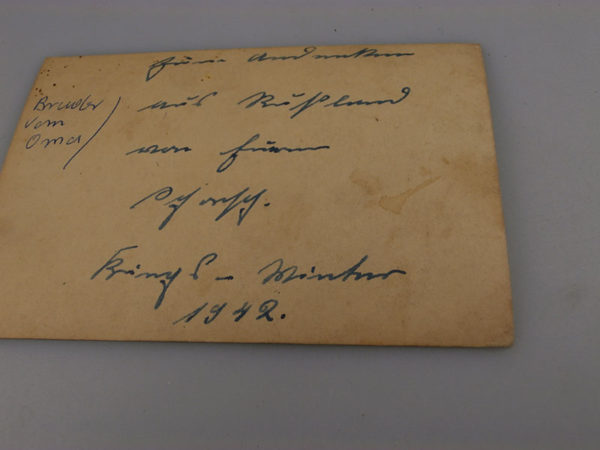 Zum Andenken
aus Rußland
von Eurem
Schorsch.
Kriegs - Winter
1942.
Bruder
vom
Oma